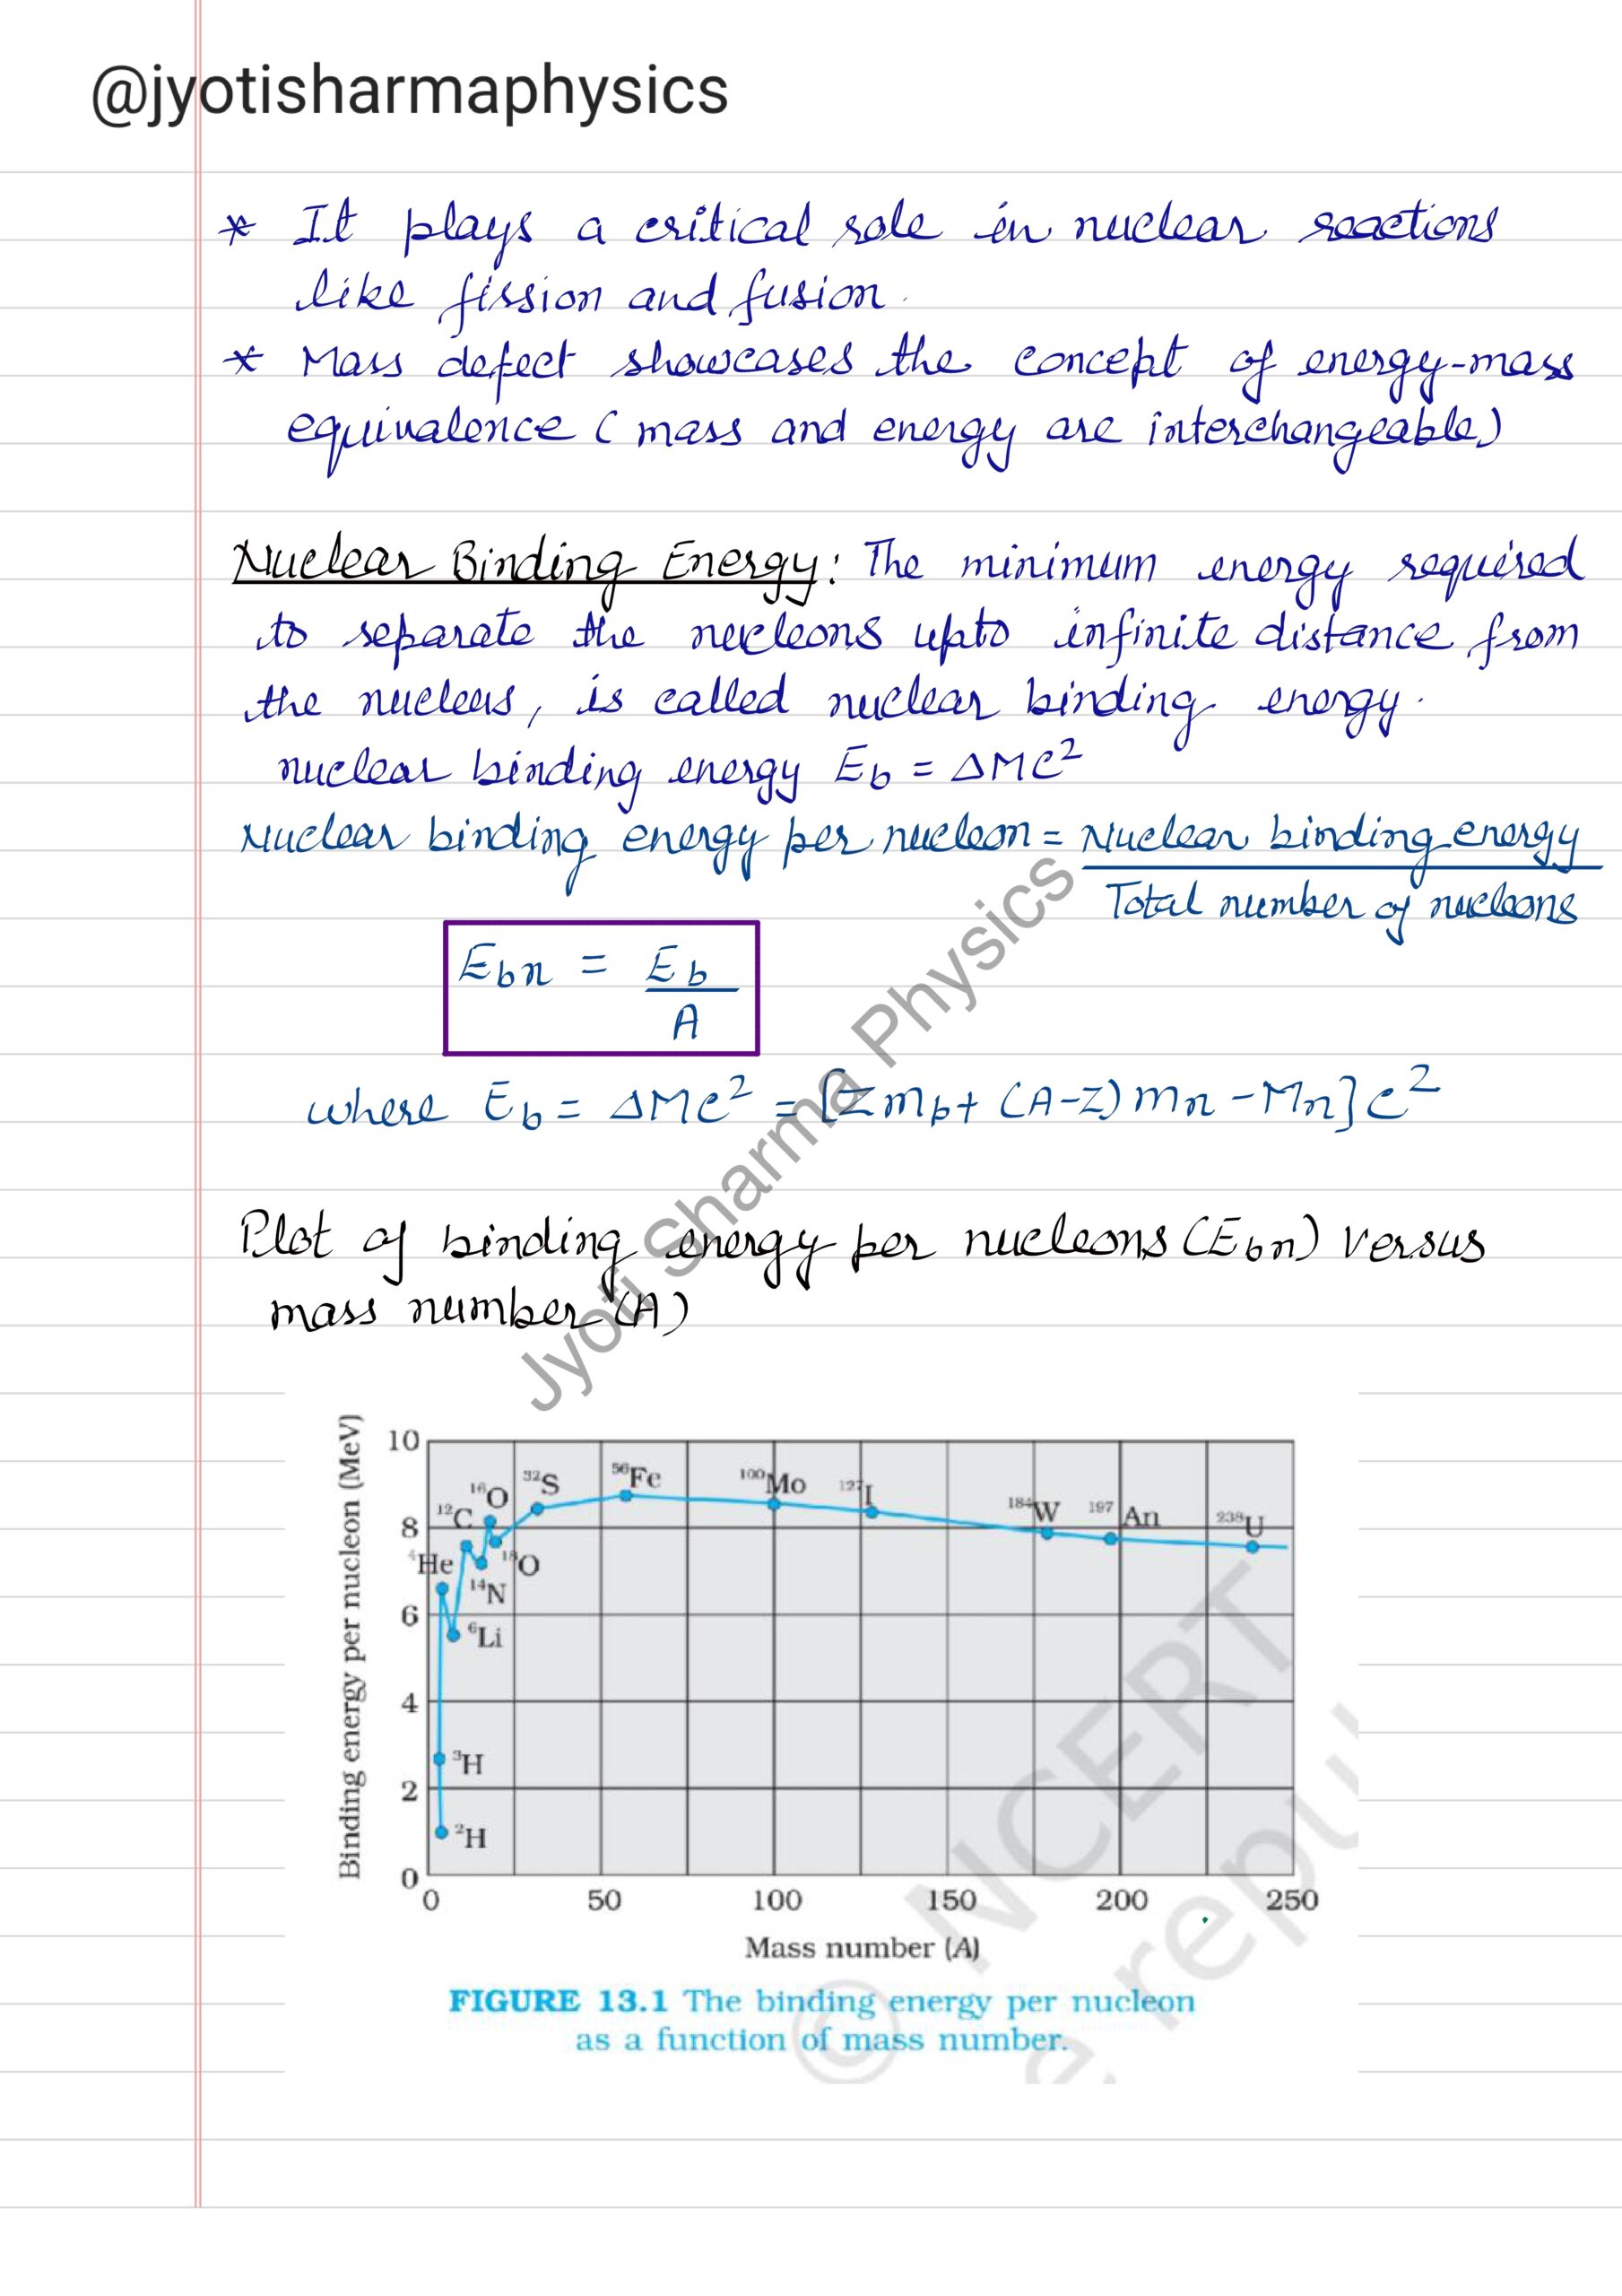 @jyotisharmaphysics
* It plays a critical role in nuclear reactions
like fission and fusion.
* Mass defect showcases the concept of energy-mass
equivalence (mass and energy are interchangeable)
Nuclear Binding Energy: The minimum energy required
to separate the nucleons upto infinite distance from
the nucleus, is called nuclear binding energy.
nuclear binding energy Eb = ΔMC²
Nuclear binding energy per nucleon = Nuclear binding energy
Total number of nucleons
Ebn = Eb
A
where Eb = ΔMC² = [Zmp + (A-Z)mn - Mn]c²
Jyoti Sharma Physics
Plot of binding energy per nucleons (Ebn) versus
mass number (A)
Binding energy per nucleon (MeV)
10
8
6
4
2
0
¹²C
¹⁶O
³²S
⁵⁶Fe
¹⁰⁰Mo
¹²⁷I
¹⁸⁴W
¹⁹⁷An
²³⁸U
⁴He
¹⁸O
¹⁴N
⁶Li
³H
²H
0 50 100 150 200 250
Mass number (A)
FIGURE 13.1 The binding energy per nucleon
as a function of mass number.
© NCERT
e repu